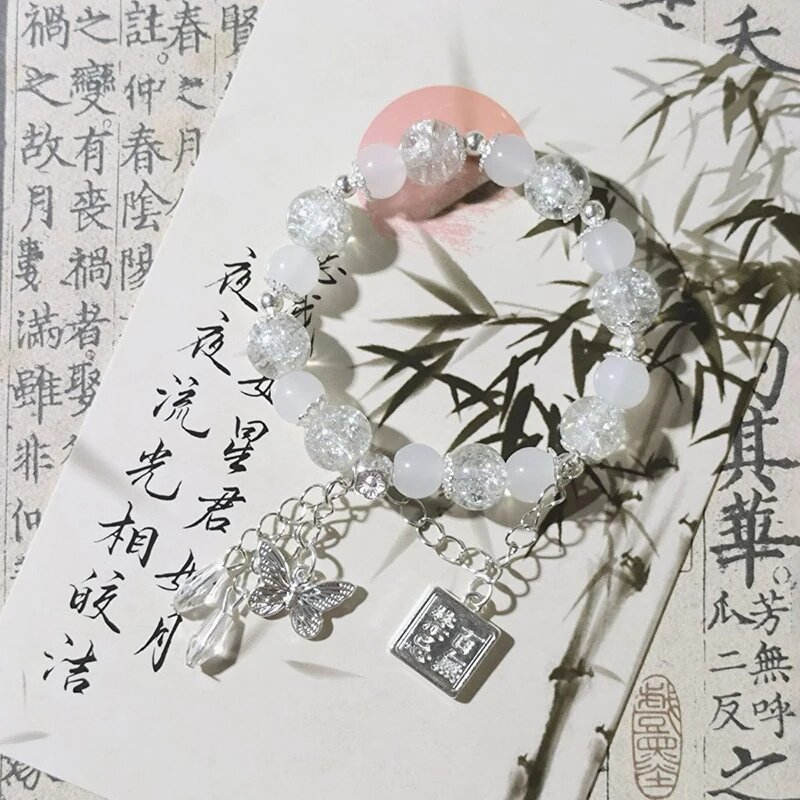 夭
其華
芳無呼
瓜二反
之
如星君如月
夜夜流光相皎洁
百無
禁忌
賢
春之月
註仲春陰陽
之變有喪禍者娶
禍之故月
滿雖非仲